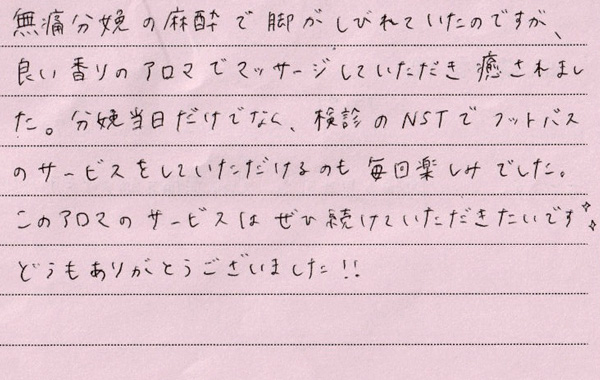 無痛分娩の麻酔で脚がしびれていたのですが、
良い香りのアロマでマッサージしていただき癒されまし
た。分娩当日だけでなく、検診のNSTでフットバス
のサービスをしていただけるのも毎回楽しみでした。
このアロマのサービスはぜひ続けていただきたいです
どうもありがとうございました!!